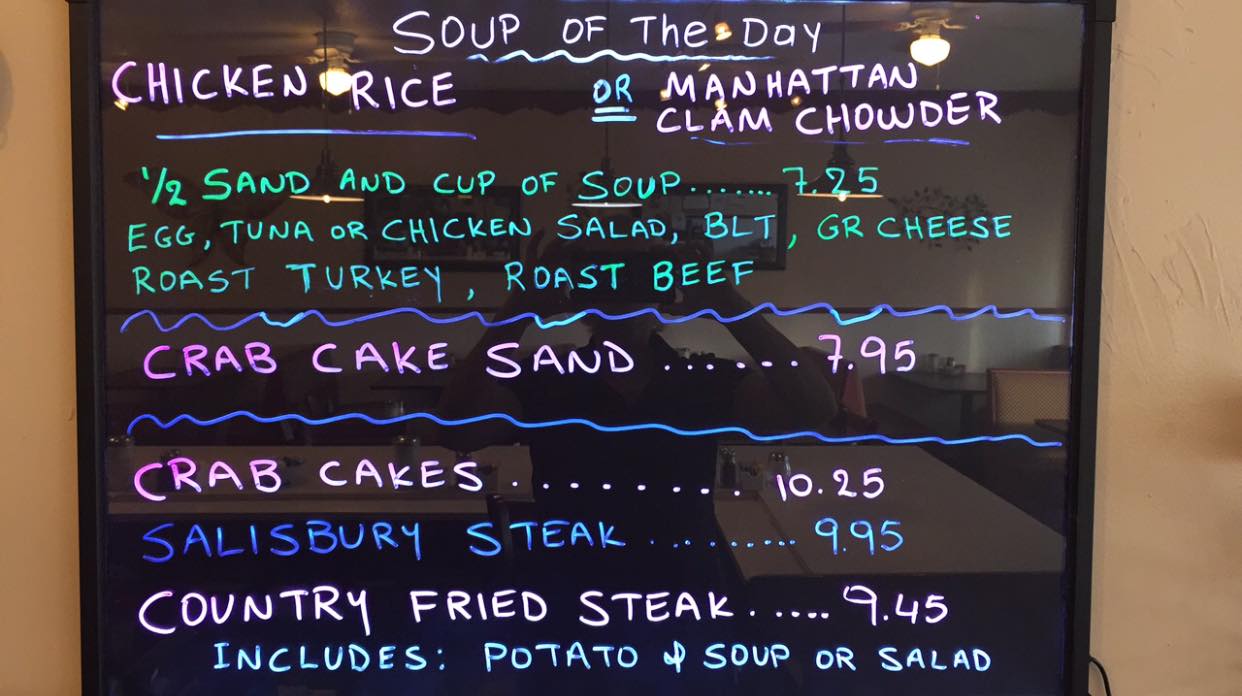 SOUP OF The Day
CHICKEN RICE OR MANHATTAN
CLAM CHOWDER
1/2 SAND AND CUP OF SOUP....... 7.25
EGG, TUNA OR CHICKEN SALAD, BLT, GR CHEESE
ROAST TURKEY, ROAST BEEF
CRAB CAKE SAND ...... 7.95
CRAB CAKES ......... 10.25
SALISBURY STEAK ......... 9.95
COUNTRY FRIED STEAK ..... 9.45
INCLUDES: POTATO & SOUP OR SALAD